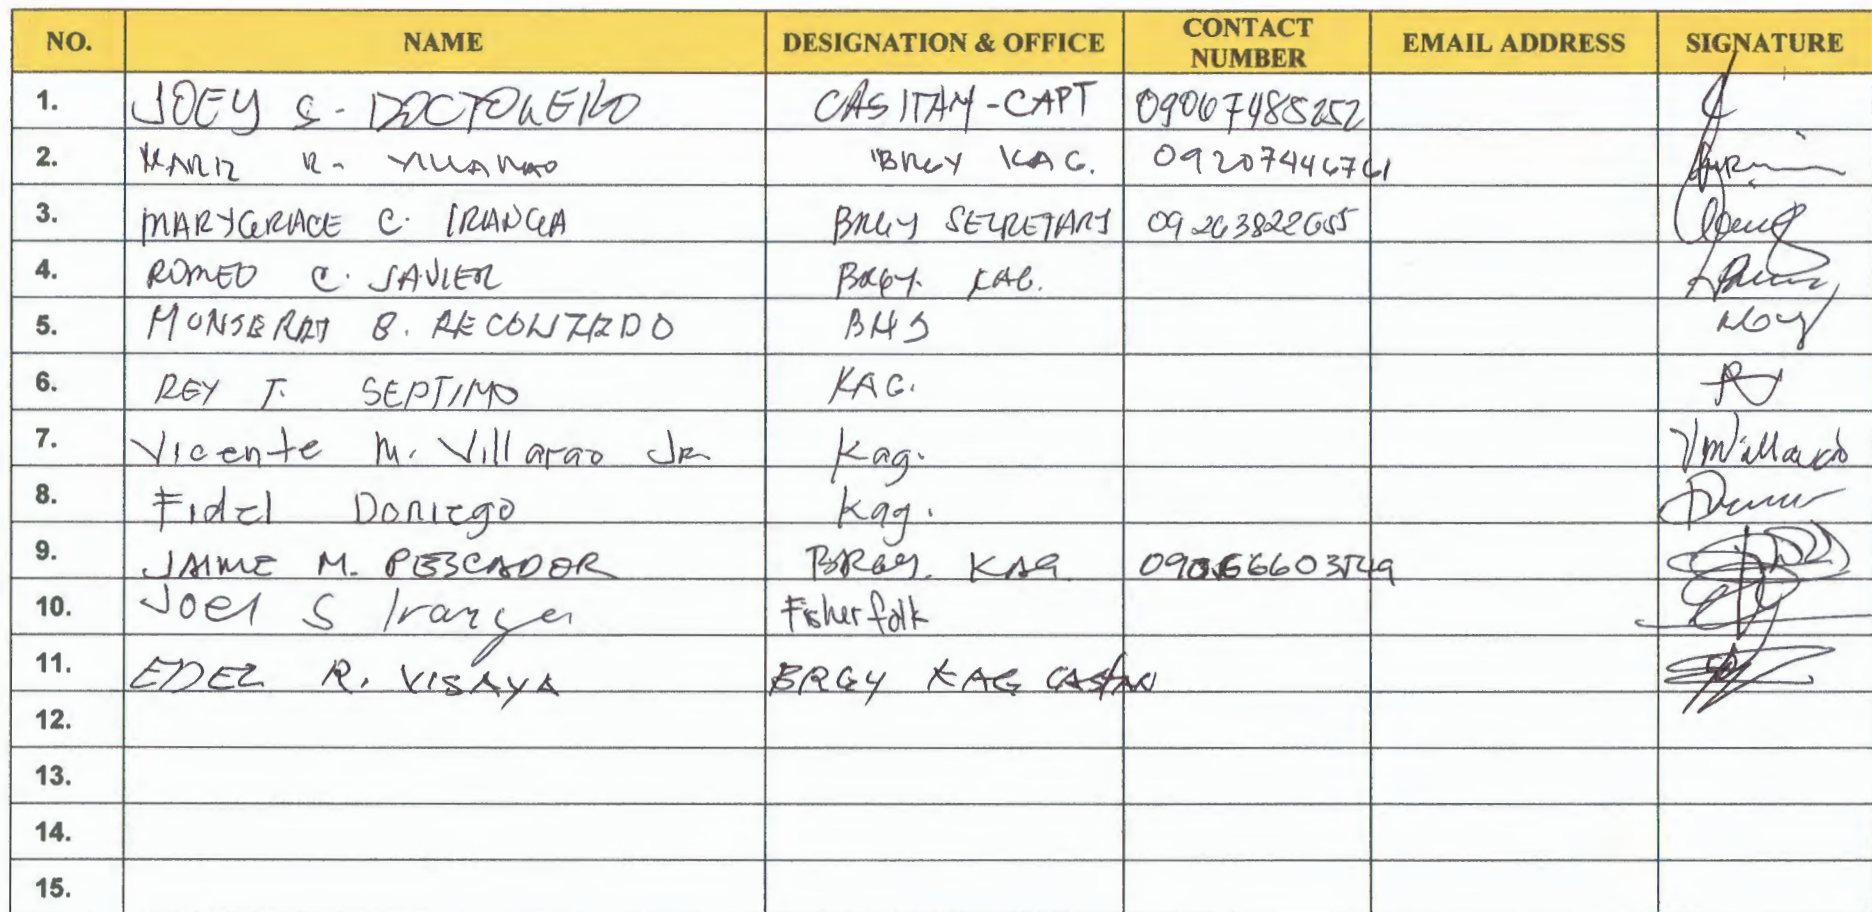 NO. NAME DESIGNATION & OFFICE CONTACT NUMBER EMAIL ADDRESS SIGNATURE
1. JOEY S. DOCTOLERO CASITAM-CAPT 09067485252
2. R. BRGY KAG. 09207446761
3. MARYGRACE C. IRANGA BRGY SECRETARY 09263822655
4. ROMEO C. JAVIER BRGY. KAG.
5. MONSERRAT B. BHS
6. REY T. SEPTIMO KAG.
7. Vicente M. Villarao Jr Kag.
8. Fidel Doniego Kag.
9. JAIME M. PESCADOR BRGY. KAG
10. Joel S Iranga Fisherfolk
11. EDEL R. VISAYA BRGY KAG
12.
13.
14.
15.